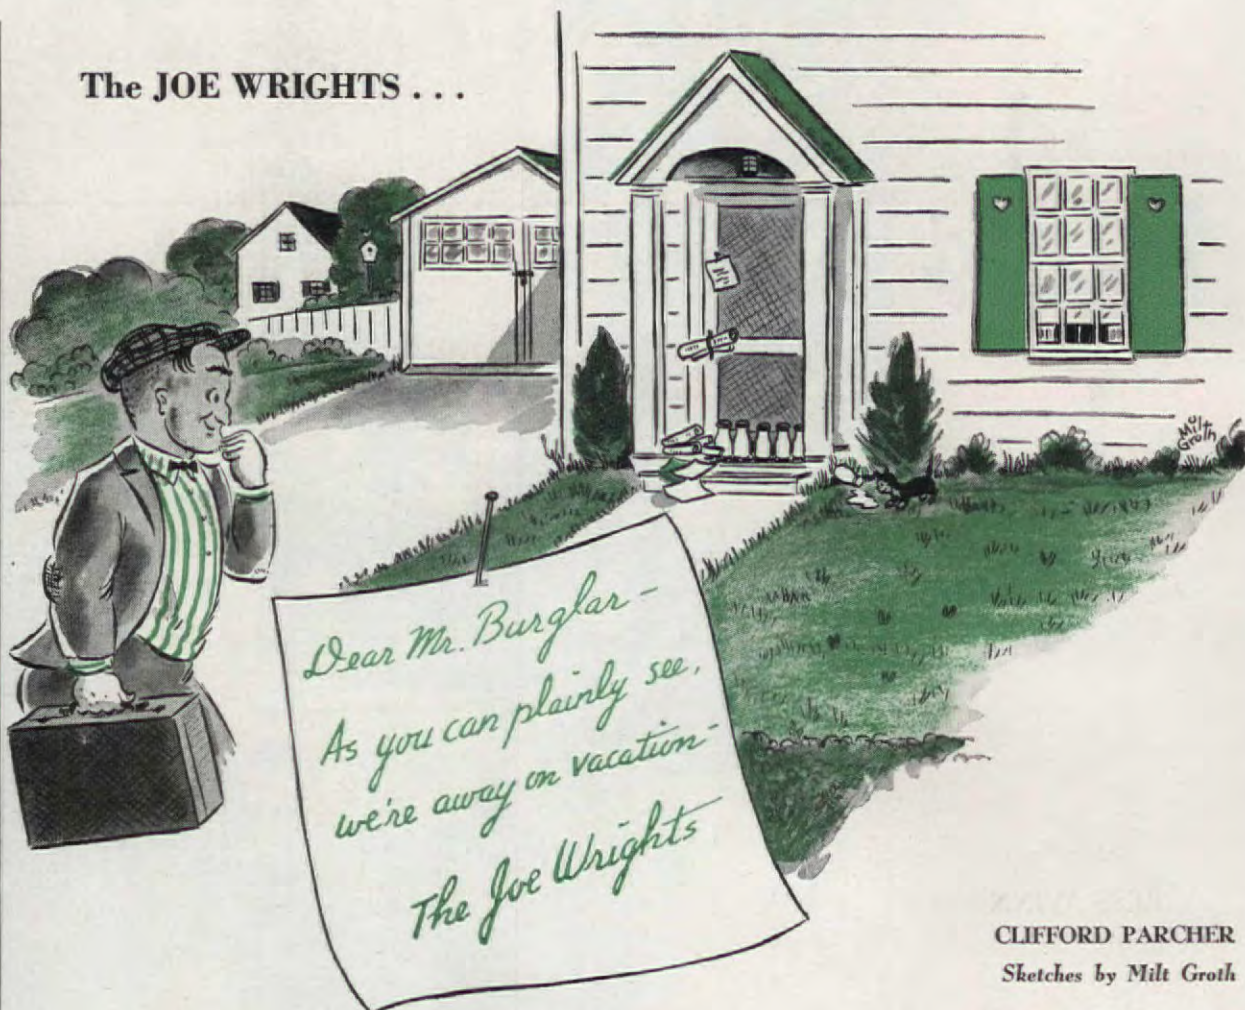 The JOE WRIGHTS . . .
Milt
Groth
Dear Mr. Burglar -
As you can plainly see,
we're away on vacation -
The Joe Wrights
CLIFFORD PARCHER
Sketches by Milt Groth